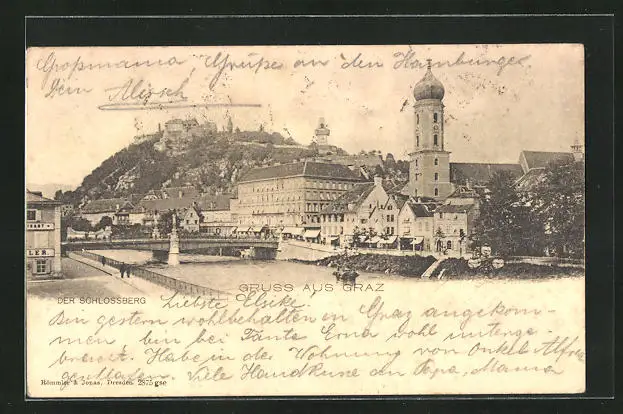 Großmama Grüße an den Hamburger
Dein
GRUSS AUS GRAZ
DER SCHLOSSBERG
Liebste Elsike!
Bin gestern wohlbehalten in Graz angekom-
men, bin bei Tante Erna wohl unterge-
bracht. Habe in der Wohnung von Onkel Alfons
geschlafen. Viele Handküsse an Papa, Mama
Römmler & Jonas, Dresden. 2875 gse
LER.